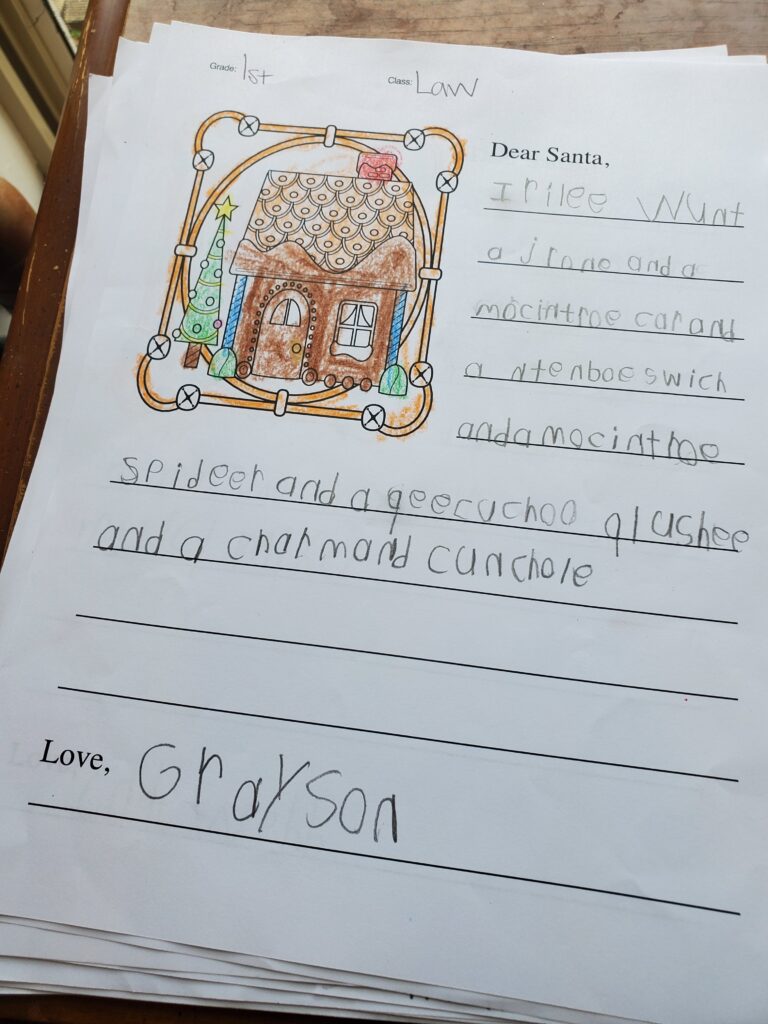 Grade: 1st Class: Law
Dear Santa,
I rilee Wunt
a jrone and a
mocintroe car and
a ntenboe swich
and a mocintroe
Spideer and a geecuchoo plushee
and a charmand cunchole
Love, Grayson